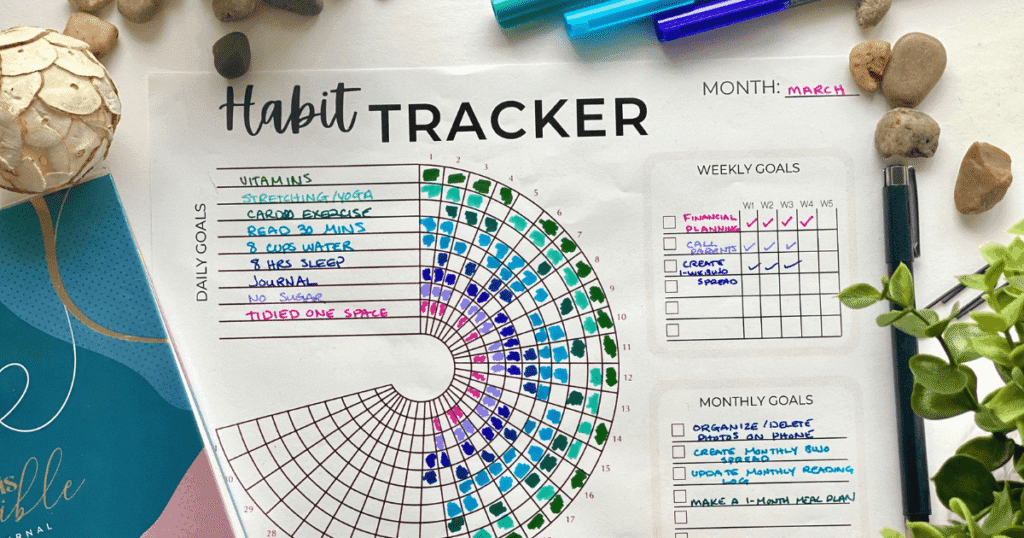 Habit TRACKER
MONTH: MARCH
DAILY GOALS
VITAMINS
STRETCHING/YOGA
CARDIO EXERCISE
READ 30 MINS
8 CUPS WATER
8 HRS SLEEP
JOURNAL
NO SUGAR
TIDIED ONE SPACE
1
2
3
4
5
6
7
8
9
10
11
12
13
14
15
16
17
28
29
WEEKLY GOALS
W1 W2 W3 W4 W5
FINANCIAL
PLANNING
CALL
PARENTS
CREATE
1-WK BUJO
SPREAD
MONTHLY GOALS
ORGANIZE/DELETE
PHOTOS ON PHONE
CREATE MONTHLY BUJO
SPREAD
UPDATE MONTHLY READING
LOG
MAKE A 1-MONTH MEAL PLAN